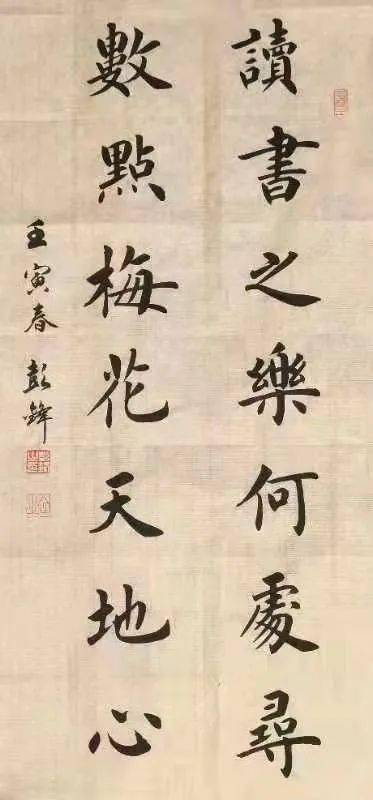 讀書之樂何處尋
數點梅花天地心
壬寅春 彭鋒